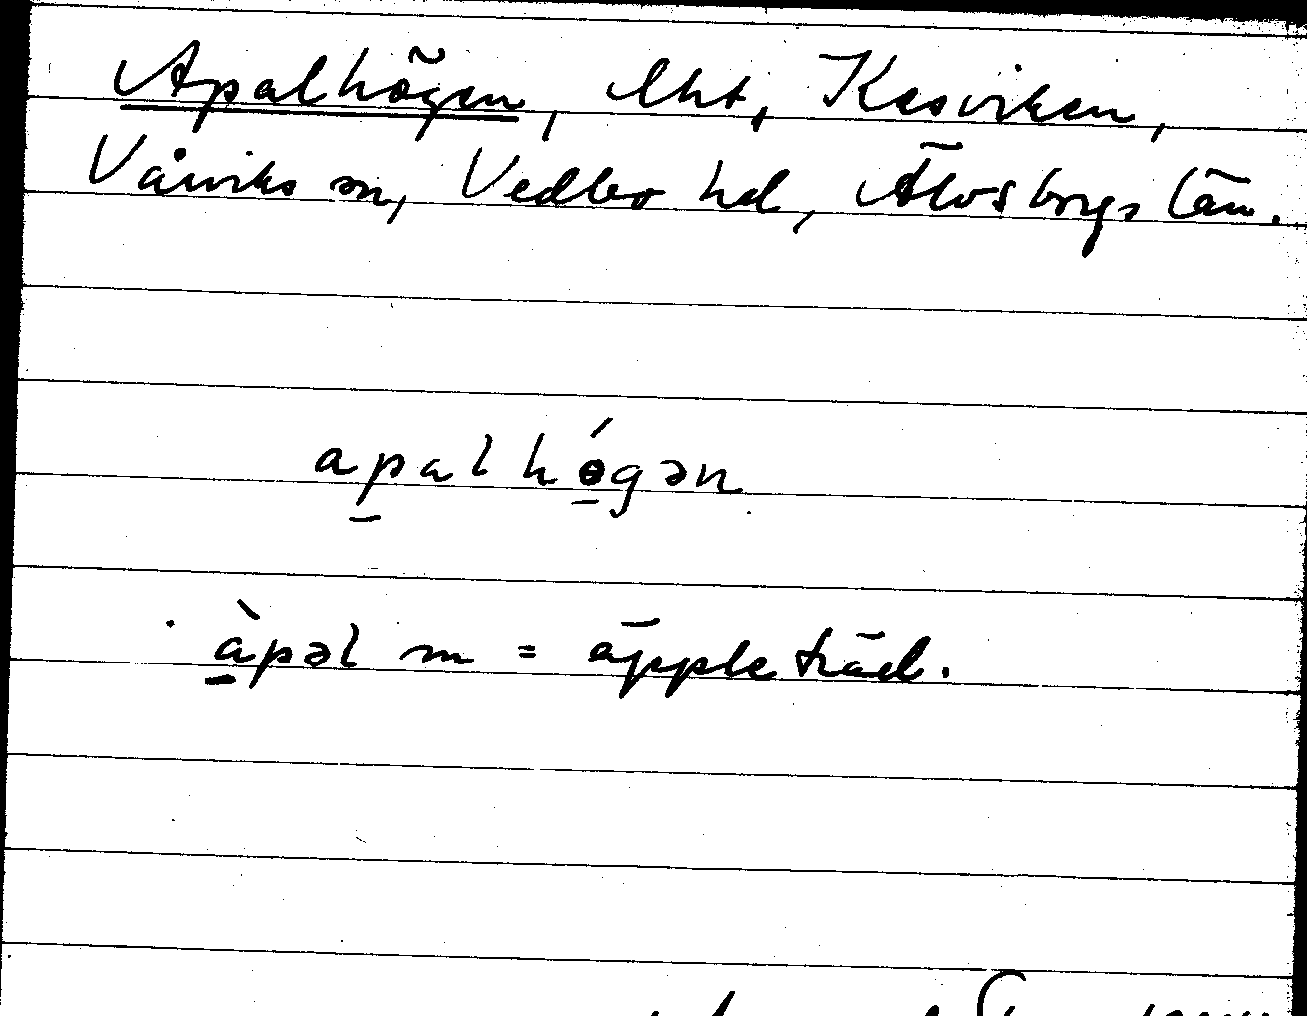 Apalhögen, lht, Kesviken,
Vårviks sn, Vedbo hd, Älvsborgs län.
apalhǿgən
àpəl m = äppleträd.